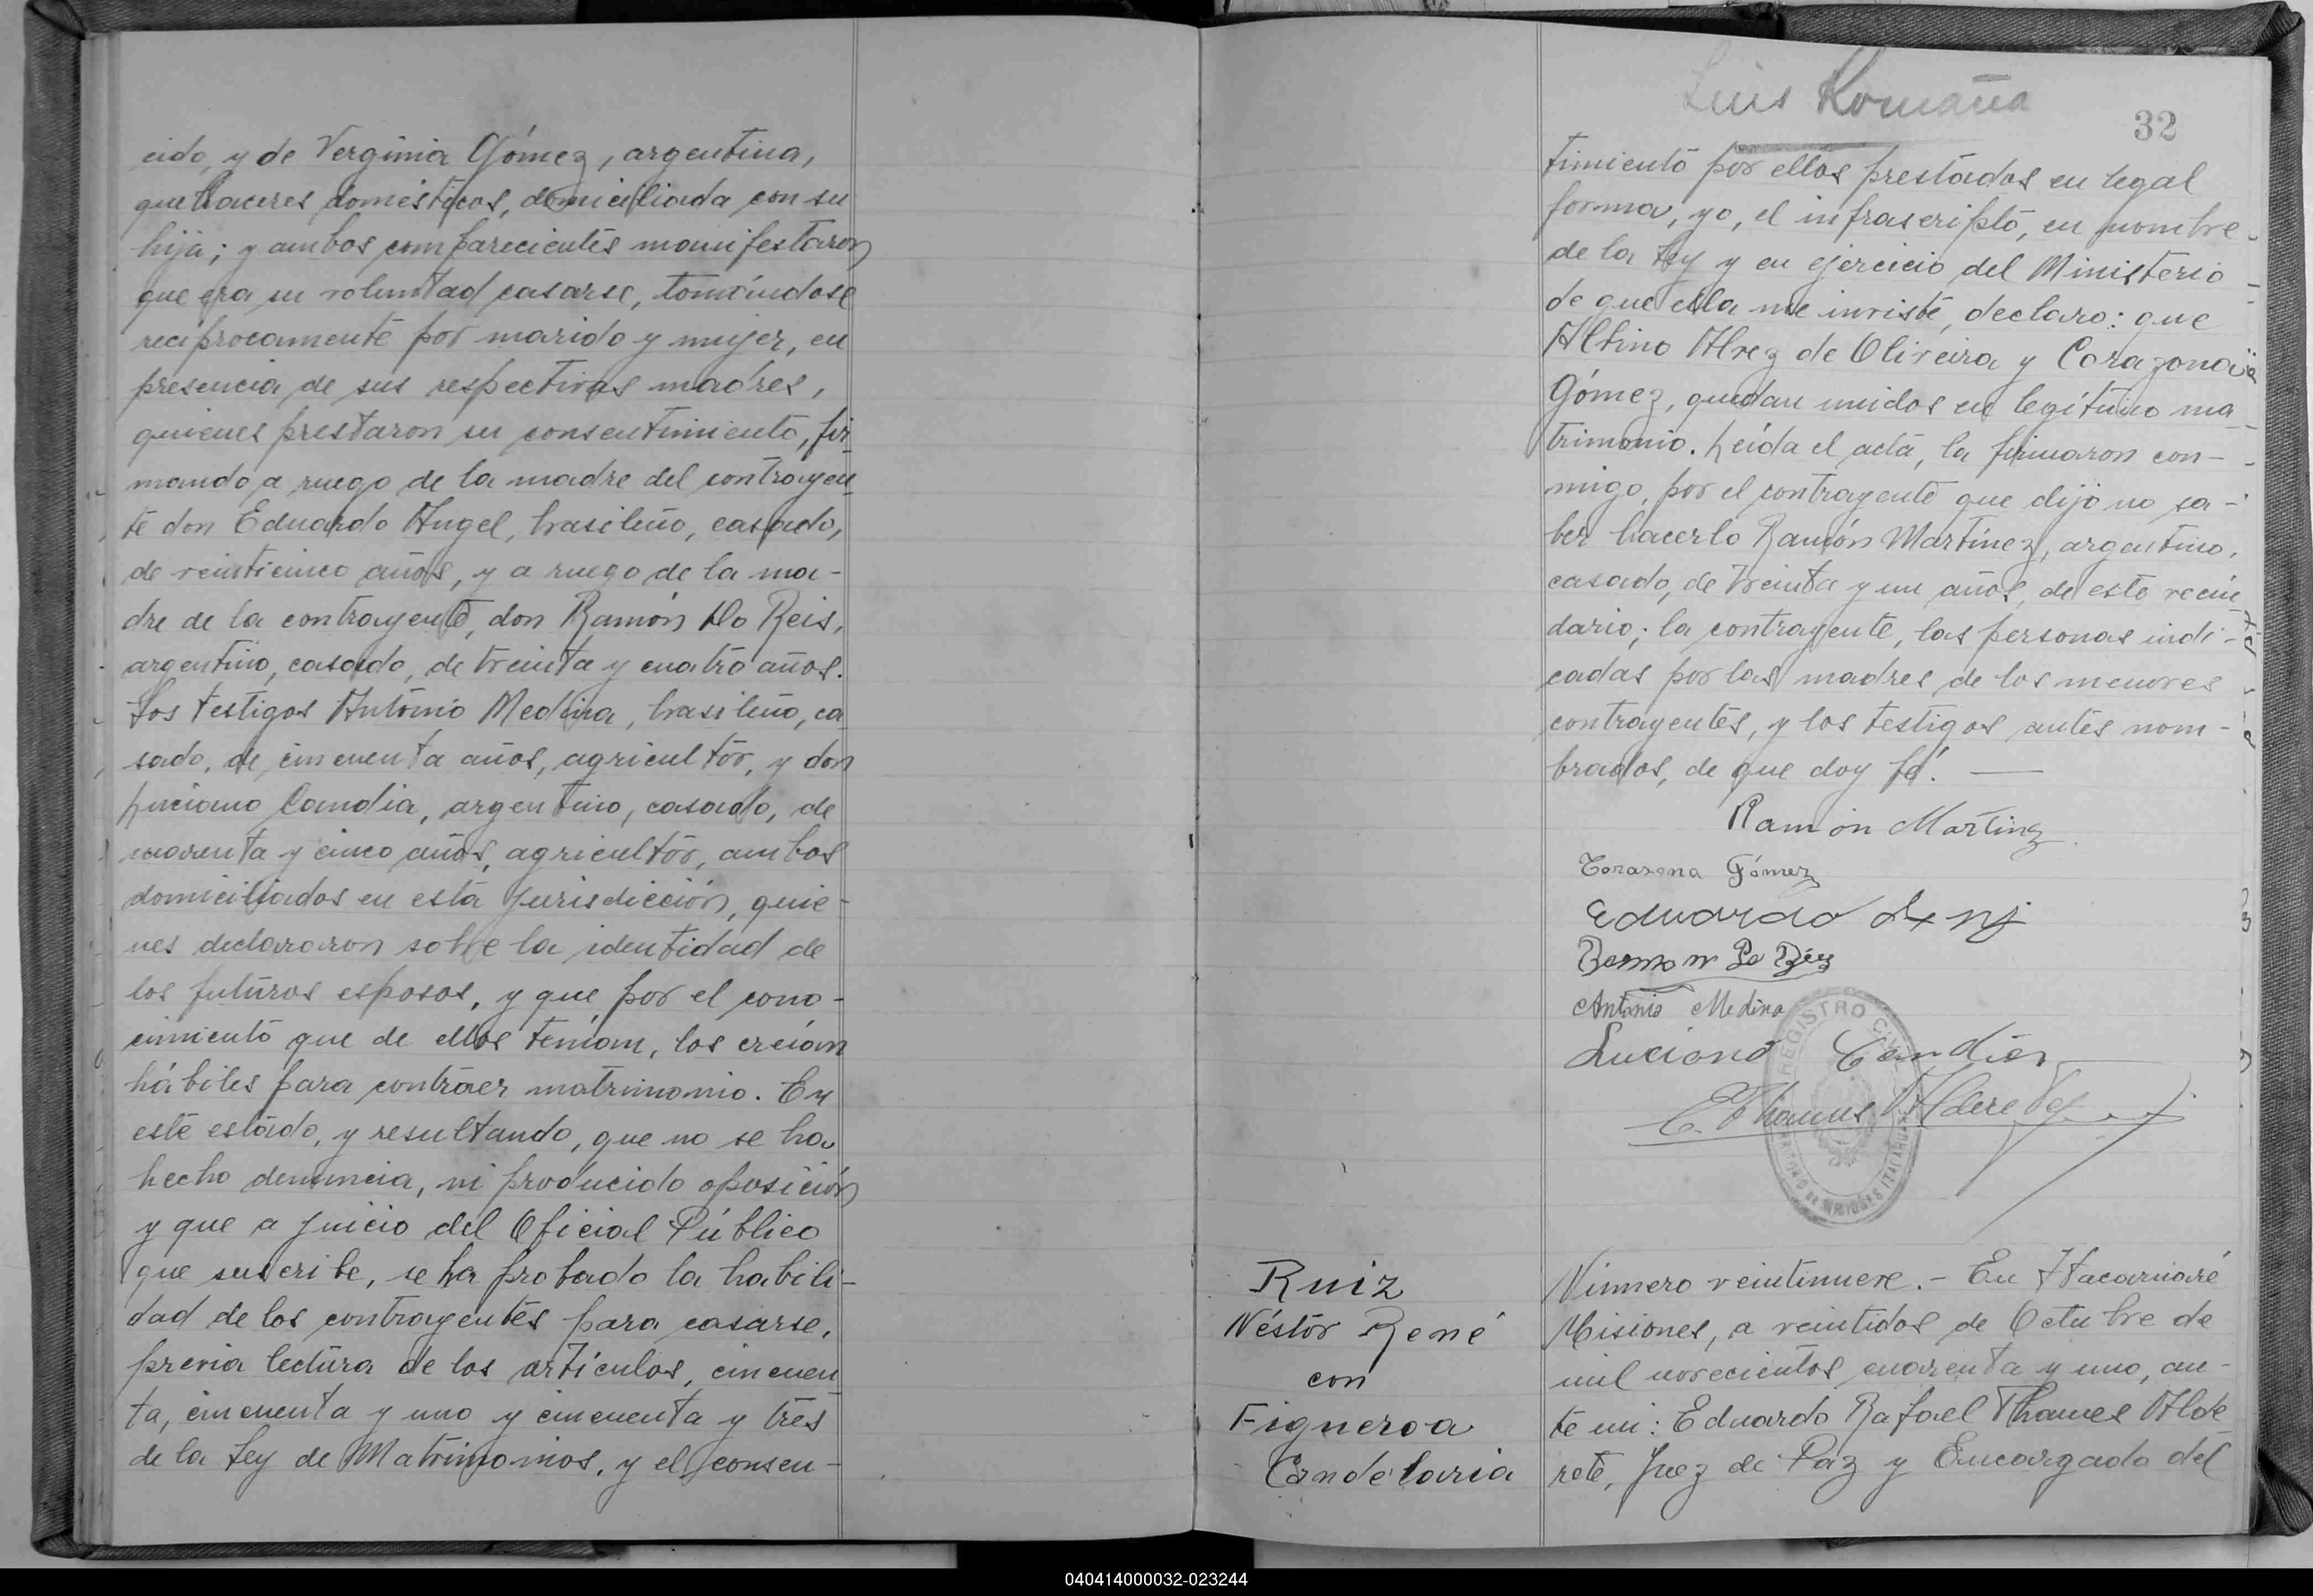 cido, y de Verginia Gómez, argentina,
quehaceres domésticos, domiciliada con su
hija; y ambos comparecientes manifestaron
que era su voluntad casarse, tomándose
reciprocamente por marido y mujer, en
presencia de sus respectivas madres,
quienes prestaron su consentimiento, fir
mando a ruego de la madre del contrayen
te don Eduardo Angel, brasileño, casado,
de veinticinco años, y a ruego de la ma-
dre de la contrayente, don Ramón Do Reis,
argentino, casado, de treinta y cuatro años.
Los testigos Antonio Medina, brasileño, ca
sado, de cincuenta años, agricultor, y don
Luciano Candia, argentino, casado, de
cuarenta y cinco años, agricultor, ambos
domiciliados en esta jurisdicción, quie-
nes declararon sobre la identidad de
los futuros esposos, y que por el cono-
cimiento que de ellos tenían, los creían
hábiles para contraer matrimonio. En
este estado, y resultando, que no se ha
hecho denuncia, ni producido oposición
y que a juicio del Oficial Público
que suscribe, se ha probado la habili-
dad de los contrayentes para casarse,
previa lectura de los artículos, cincuen
ta, cincuenta y uno y cincuenta y tres
de la Ley de Matrimonios, y el consen-
Luis Romaña
32
timiento por ellos prestados en legal
forma, yo, el infrascripto, en nombre
de la Ley y en ejercicio del Ministerio
de que ella me inviste, declaro: que
Altino Alvez de Oliveira y Corazona
Gómez, quedan unidos en legítimo ma
trimonio. Leída el acta, la firmaron con-
migo, por el contrayente que dijo no sa-
ber hacerlo Ramón Martinez, argentino,
casado, de treinta y un años, de este vecin
dario; la contrayente, las personas indi-
cadas por las madres de los menores
contrayentes, y los testigos antes nom-
brados, de que doy fé. —
Ramón Martinez
Corasona Gómez
Eduardo
Antonio Medina
Luciano Candia
E. Thames Alderete
REGISTRO CIVIL
TERRITORIO DE MISIONES ITACARUARE
Ruiz
Néstor René
con
Figueroa
Candelaria
Número veintinueve.- En Itacaruaré
Misiones, a veintidos de Octubre de
mil novecientos cuarenta y uno, an-
te mi: Eduardo Rafael Thames Alde
rete, Juez de Paz y Encargado del
040414000032-023244